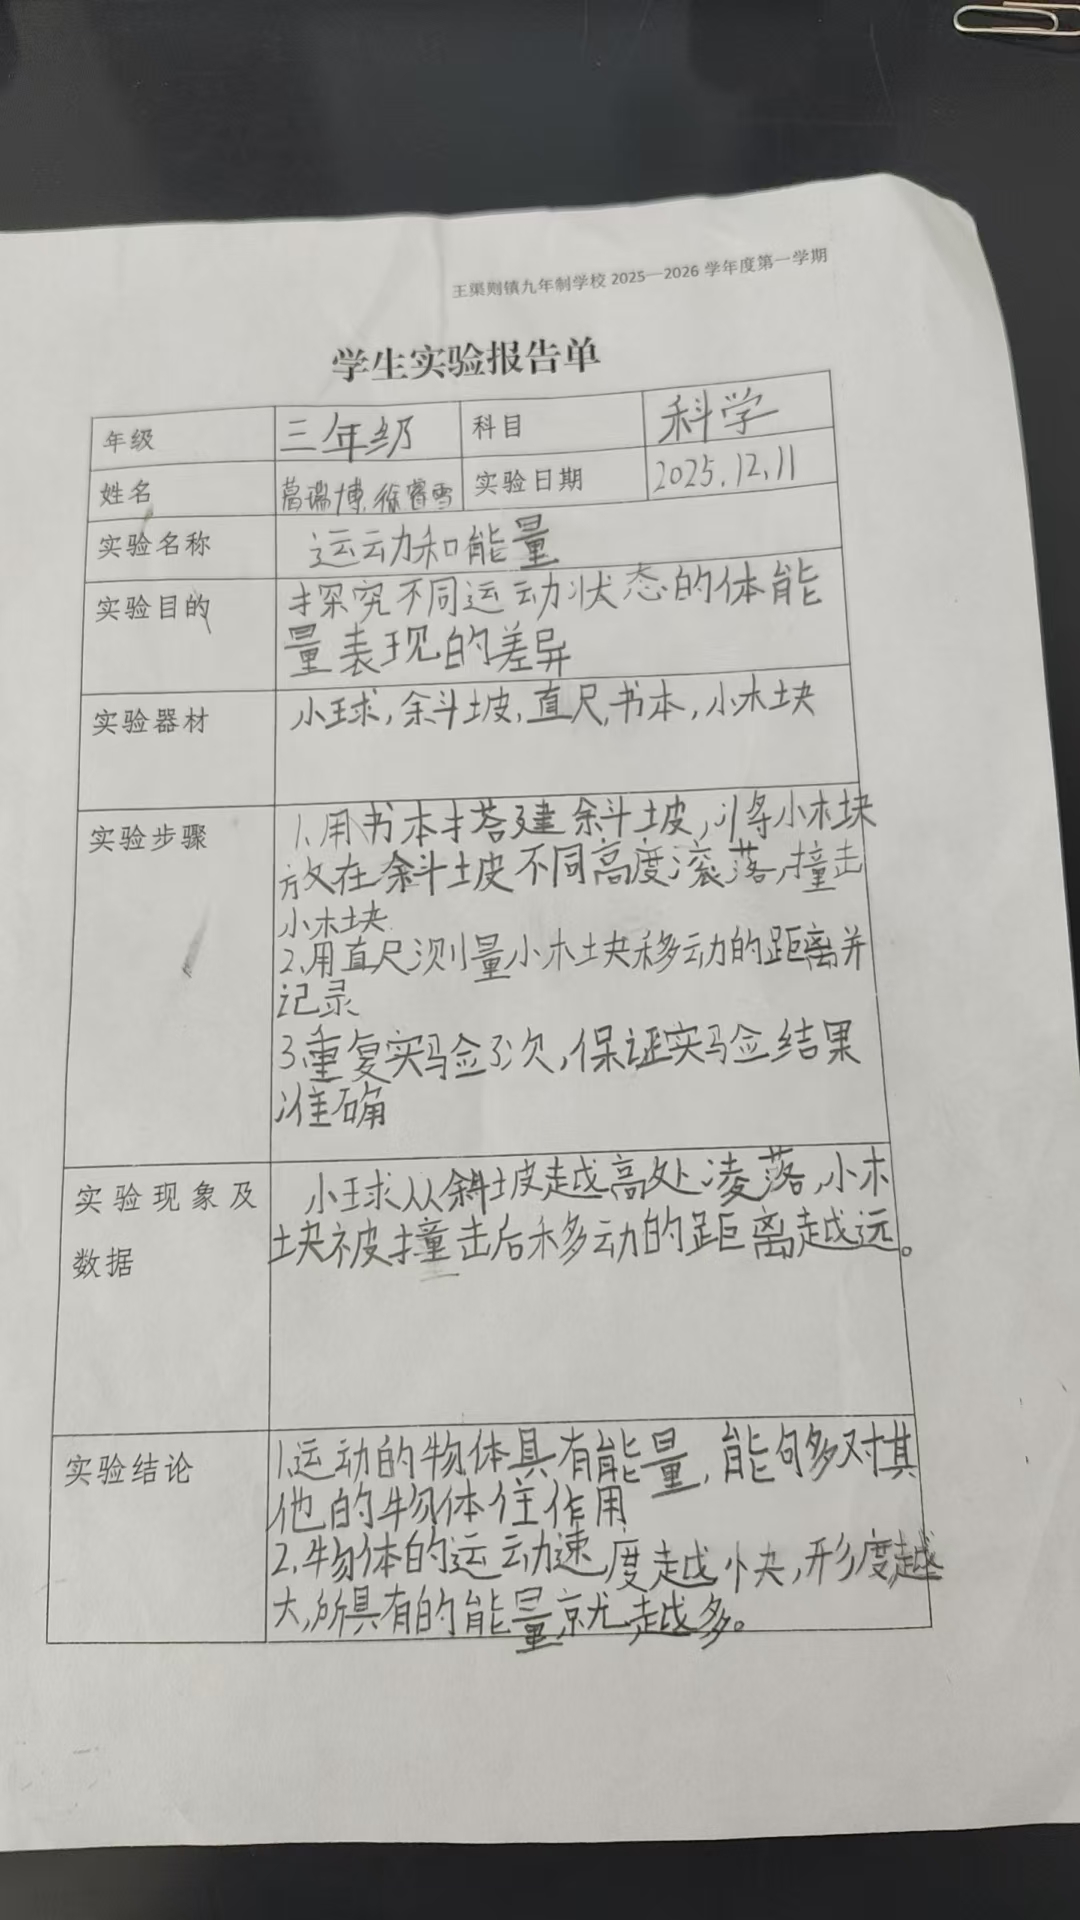 王渠则镇九年制学校 2025—2026 学年度第一学期
学生实验报告单
年级 三年级 科目 科学
姓名 葛瑞博,徐睿雪 实验日期 2025.12.11
实验名称 运动和能量
实验目的 探究不同运动状态的体能
量表现的差异
实验器材 小球,余斗坡,直尺,书本,小木块
实验步骤 1.用书本搭建余斗坡,将小木块
放在余斗坡不同高度滚落,撞击
小木块
2.用直尺测量小木块移动的距离并
记录
3.重复实验3次,保证实验结果
准确
实验现象及 小球从斜坡越高处凌落,小木
数据 块被撞击后移动的距离越远。
实验结论 1.运动的物体具有能量,能句多对其
他的物体住作用
2.物体的运动速度越快,形度越
大,所具有的能量就越多。